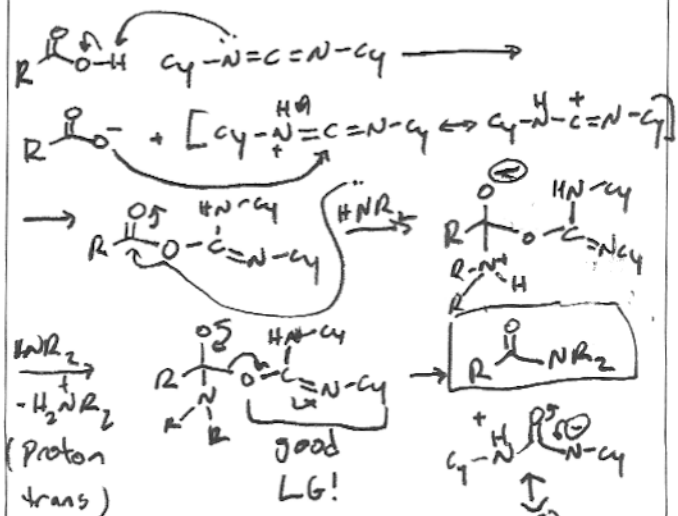 R O O-H Cy-N=C=N-Cy
R O O- + [Cy-N=C=N-Cy ↔ Cy-N-C=N-Cy]
H + H +
R O O-C=N-Cy HN-Cy HNR2 R O O-C=NCy HN-Cy
R-N+ H R
HNR2
-H2NR2 +
(proton
trans)
R O O-C=N-Cy HN-Cy N R R
good
LG!
R O NR2
+ Cy-N H O N-Cy -